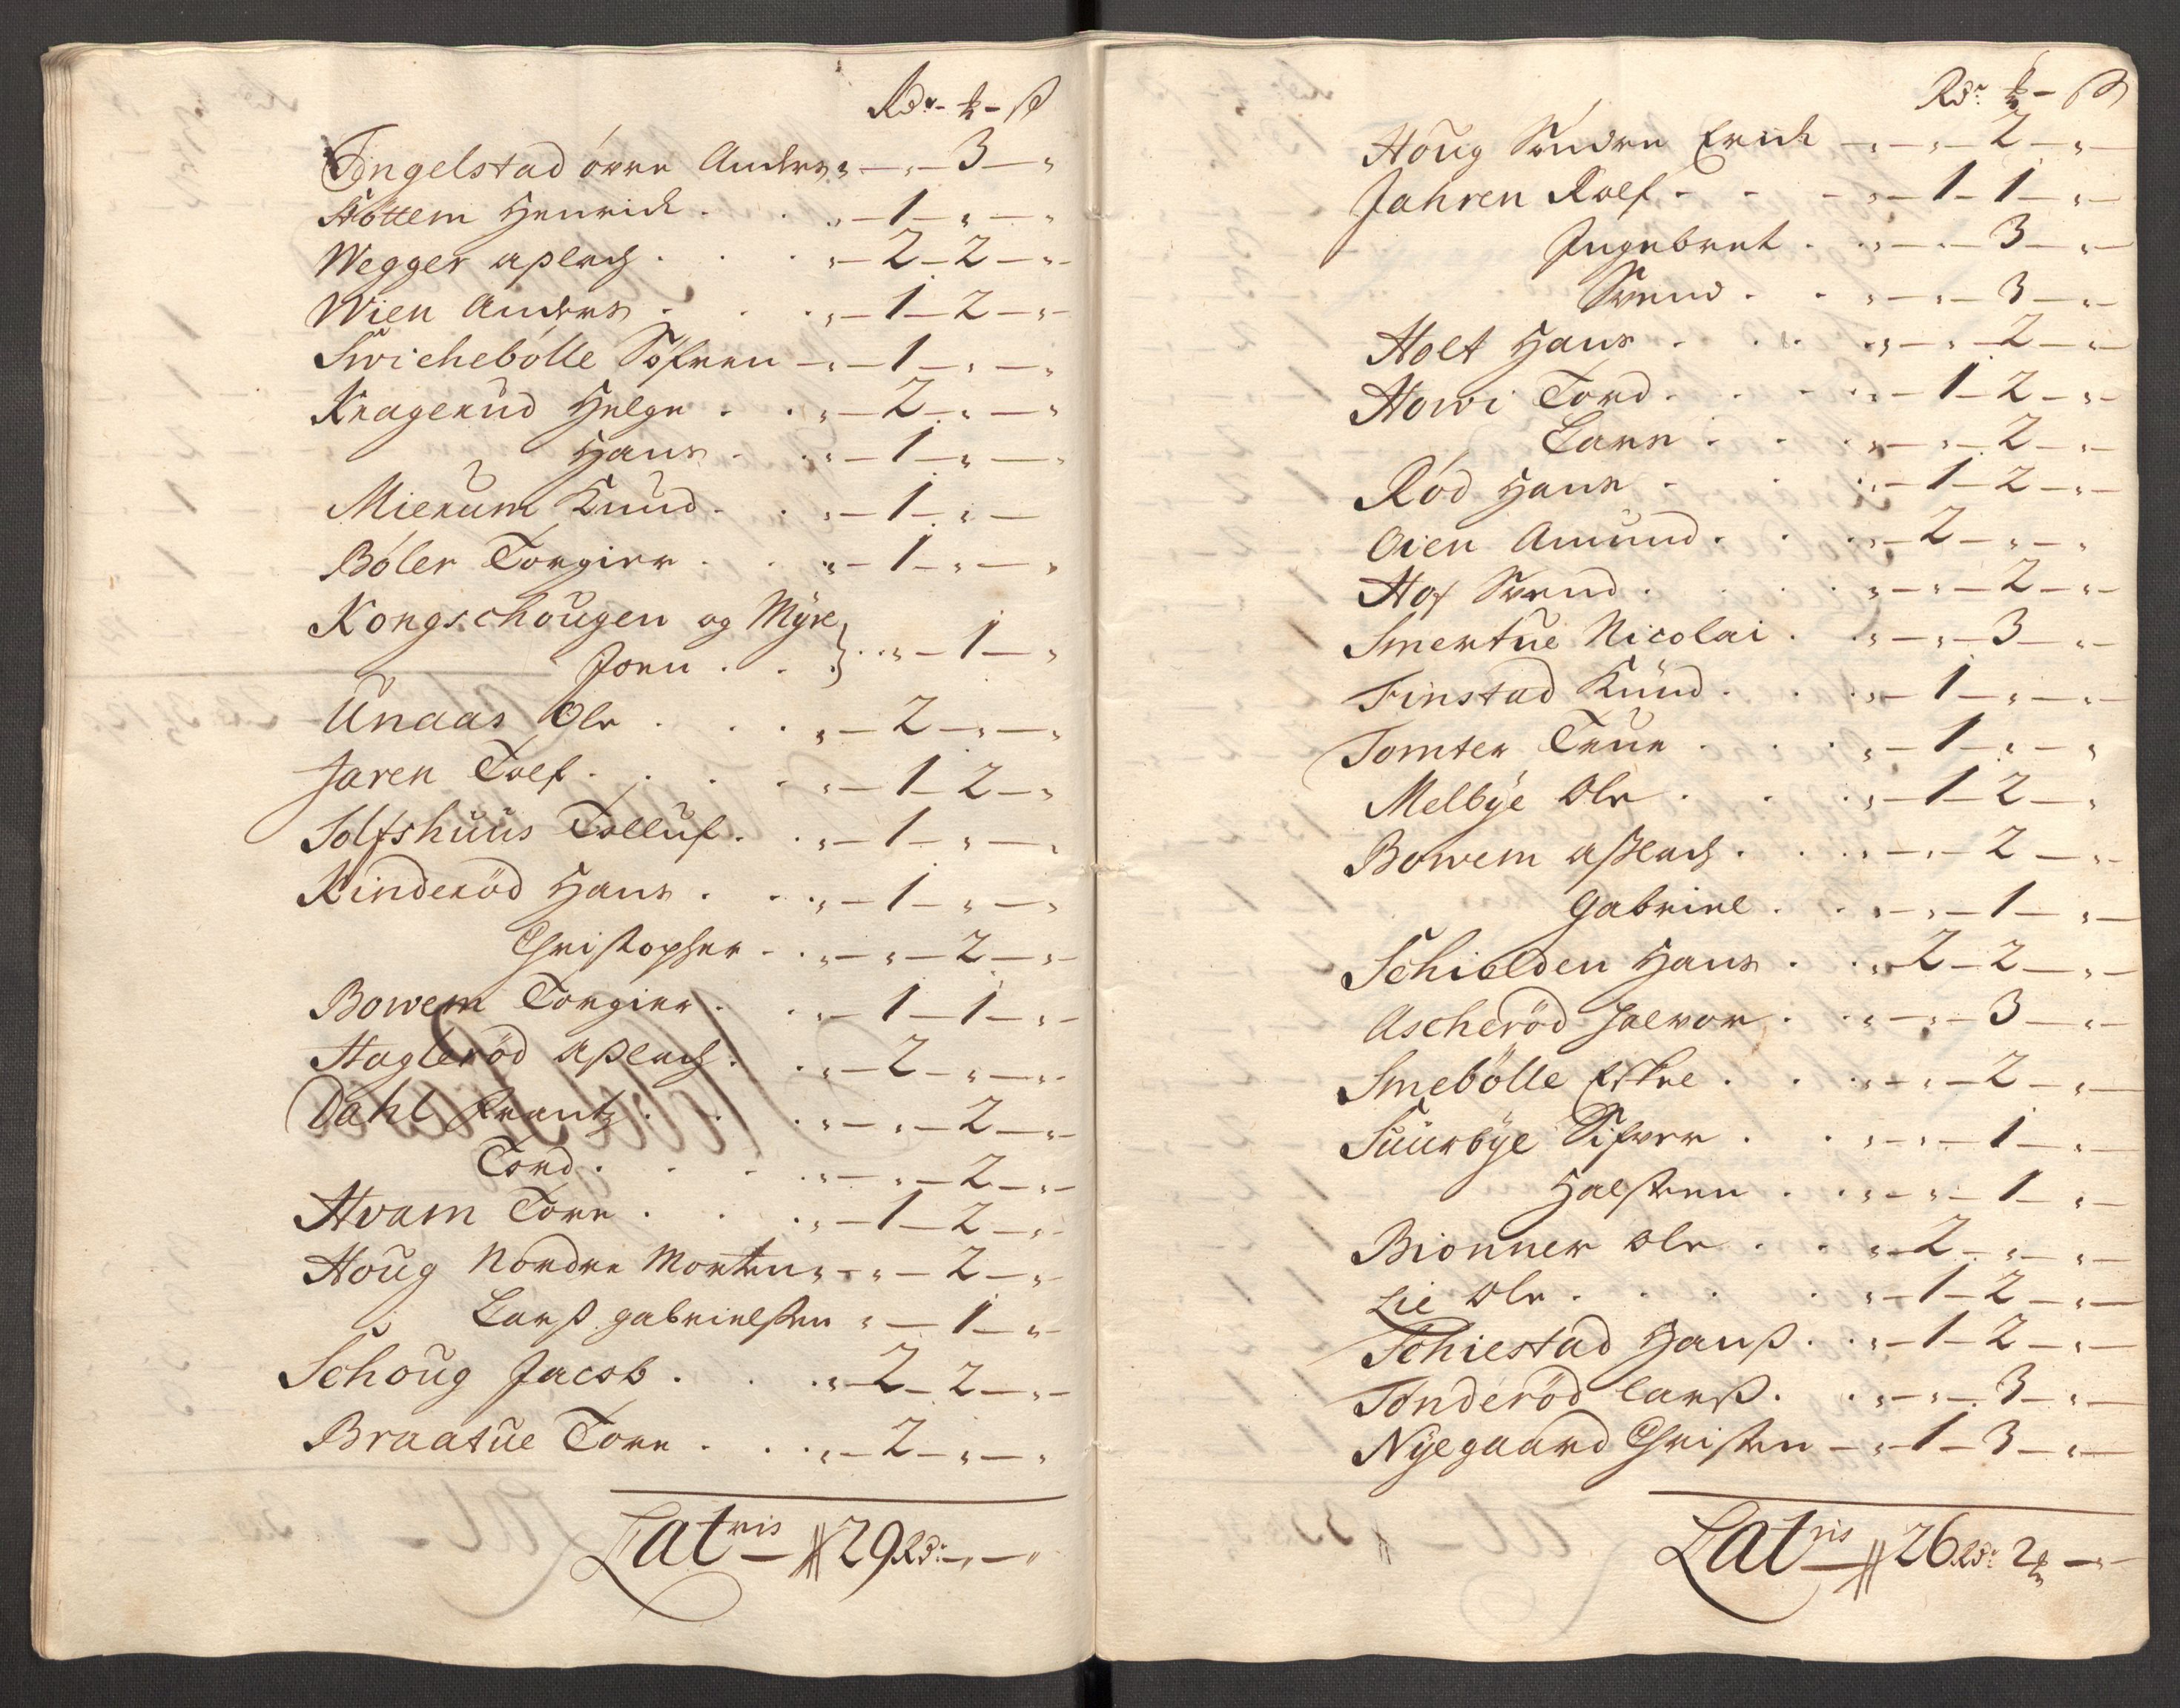 Rdr - ₰ - ß
Engelstad övre Anders „ — „ — 3 — „
Hottem Henrich . . „ — 1 — „ — „
Wegger Aßlach . . . „ — 2 — 2 — „
Wien Anders . . . „ — 1 — 2 — „
Swichebölle Söfren — „ — 1 — „ — „
Kragerud Helge . . „ — 2 — „ — „
Hans . . „ — 1 — „ — „
Mierum Knud . . „ — 1 — „ —
Böler Torgier . . „ — 1 — „ — „
Kongschougen og Myre
Jorn . . } . . „ — 1 — „
Unaas Ole . . . „ — 2 — „ — „
Jaren Tolf . . . . „ — 1 — 2 — „
Solfshuus Tolluf . . „ — 1 — „ — „
Kinderöd Hans . . . „ — 1 — „ — „
Christopher . . „ — „ — 2 — „
Bowem Torgier . . . „ — 1 — 1 — „
Hagleröd Aßlach . . . „ — 2 — „ — „
Dahl Frantz . . . „ — „ — 2 — „
Tord . . . . „ — „ — 2 — „
Hvam Tore . . . „ — 1 — 2 — „
Houg Nordre Morten „ — „ — 2 — „
Larß Gabrielßen „ — 1 — „
Schoug Jacob . . . „ — 2 — 2 — „
Braatue Tore . . . „ — 2 — „ — „
Latris — 29 Rd: — „ — „
Rdr ₰ — ß
Houg Söndre Erich — „ — „ — 2 — „
Jahren Rolf - - - „ — 1 — 1 — „
Ingebret . . „ — „ — 3 — „
Svend . . „ — „ — 3 — „
Holt Hans . . . . „ — „ — 2 — „
Howi Tord . . . . „ — 1 — 2 — „
Lars . . . „ — „ — 2 — „
Röd Hans . . . „ — 1 — 2 — „
Oien Amund . . . „ — 2 — „ — „
Hof Svend . . . . „ — „ — 2 — „
Smertue Nicolai . . „ — „ — 3 — „
Finstad Knud . . . „ — 1 — „ — „
Tomter True . . . „ — 1 — „ — „
Melbye Ole . . . „ — 1 — 2 — „
Bowem Aßlach . . . „ — „ — 2 — „
Gabriel . . „ — „ — 1 — „
Schielden Hans . . „ 2 — 2 — „
Ascheröd Halvor . . „ — „ — 3 — „
Smebölle Eskel . . . „ — „ — 2 — „
Suurbye Sifver . . „ — „ — 1 — „
Halsten . . „ — „ — 1 — „
Bionner Ole . . . „ — 2 — „ — „
Lie Ole . . . . „ — 1 — 2 — „
Schiestad Hanß . . „ — 1 — 2 — „
Tonderöd Larß . . „ — „ — 3 — „
Nyegaard Christen — „ — 1 — 3 — „
Latris 26 Rd: 2 ₰ — „